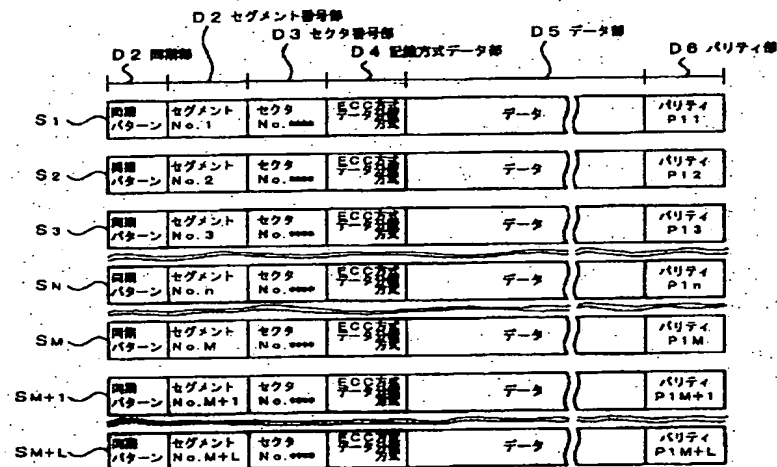 D2 セグメント番号部
D3 セクタ番号部
D5 データ部
D2 同期部
D4 記録方式データ部
D6 パリティ部
S1 同期パターン セグメントNo.1 セクタNo.**** ECC方式データ方式 データ パリティP11
S2 同期パターン セグメントNo.2 セクタNo.**** ECC方式データ方式 データ パリティP12
S3 同期パターン セグメントNo.3 セクタNo.**** ECC方式データ方式 データ パリティP13
SN 同期パターン セグメントNo.n セクタNo.**** ECC方式データ方式 データ パリティP1n
SM 同期パターン セグメントNo.M セクタNo.**** ECC方式データ方式 データ パリティP1M
SM+1 同期パターン セグメントNo.M+1 セクタNo.**** ECC方式データ方式 データ パリティP1M+1
SM+L 同期パターン セグメントNo.M+L セクタNo.**** ECC方式データ方式 データ パリティP1M+L